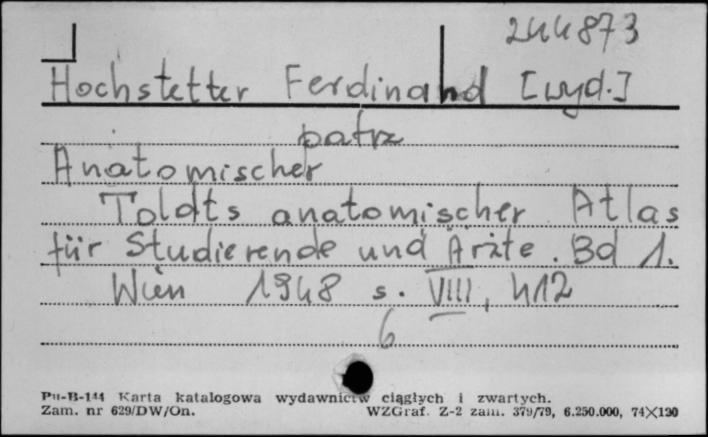 244873
Hochstetter Ferdinand [wyd.]
patrz
Anatomischer
Toldts anatomischer Atlas
für Studierende und Ärzte. Bd 1.
Wien 1948 s. VIII, 412
6
Pu-B-144 Karta katalogowa wydawnictw ciągłych i zwartych.
Zam. nr 629/DW/On. WZGraf. Z-2 zam. 379/79, 6.250.000, 74×120